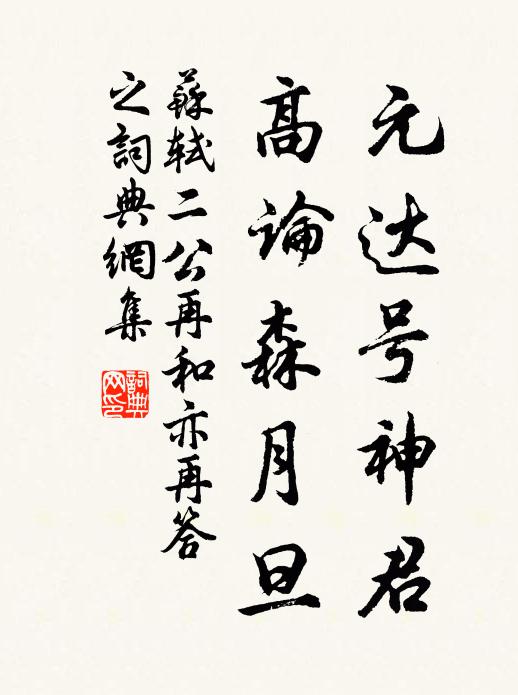 元达号神君
高論森月旦
蘇軾二公再和亦再答
之詞典網集
詞典网印